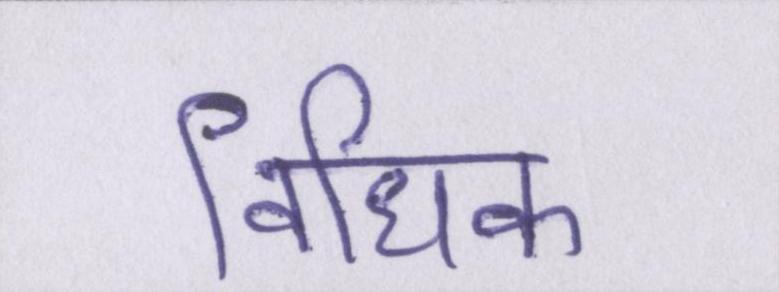 विधिक